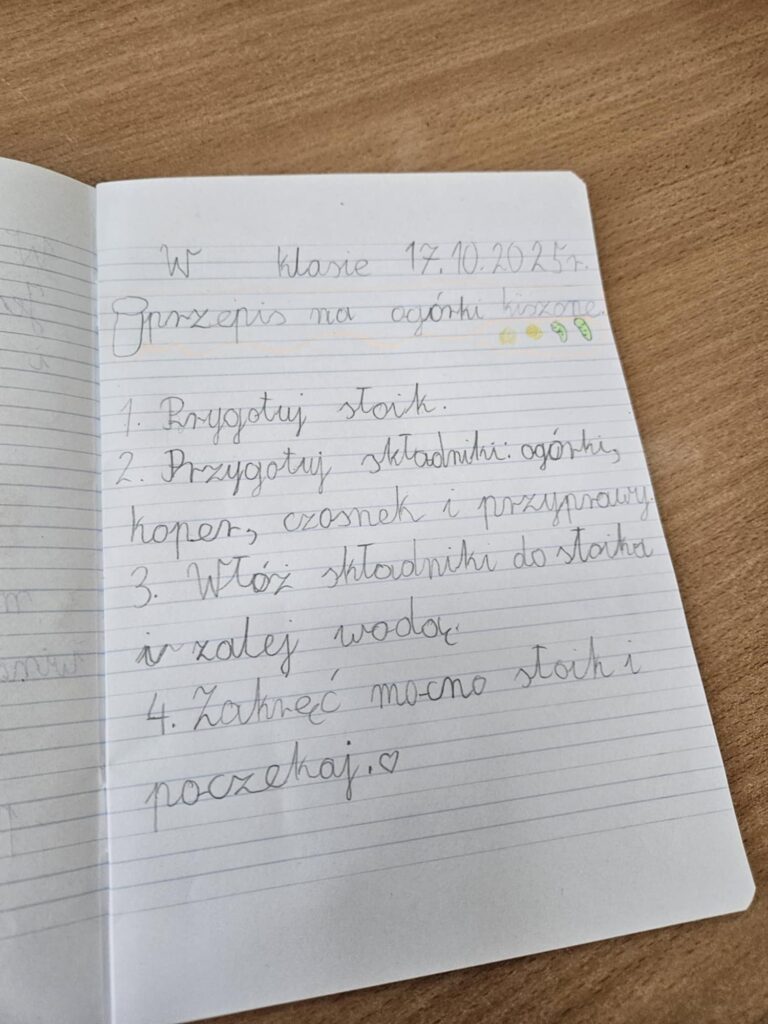 W klasie 17.10.2025r.
przepis na ogórki kiszone.
1. Przygotuj słoik.
2. Przygotuj składniki: ogórki,
koper, czosnek i przyprawy.
3. Włóż składniki do słoika
i zalej wodą.
4. Zakręć mocno słoik i
poczekaj.♡